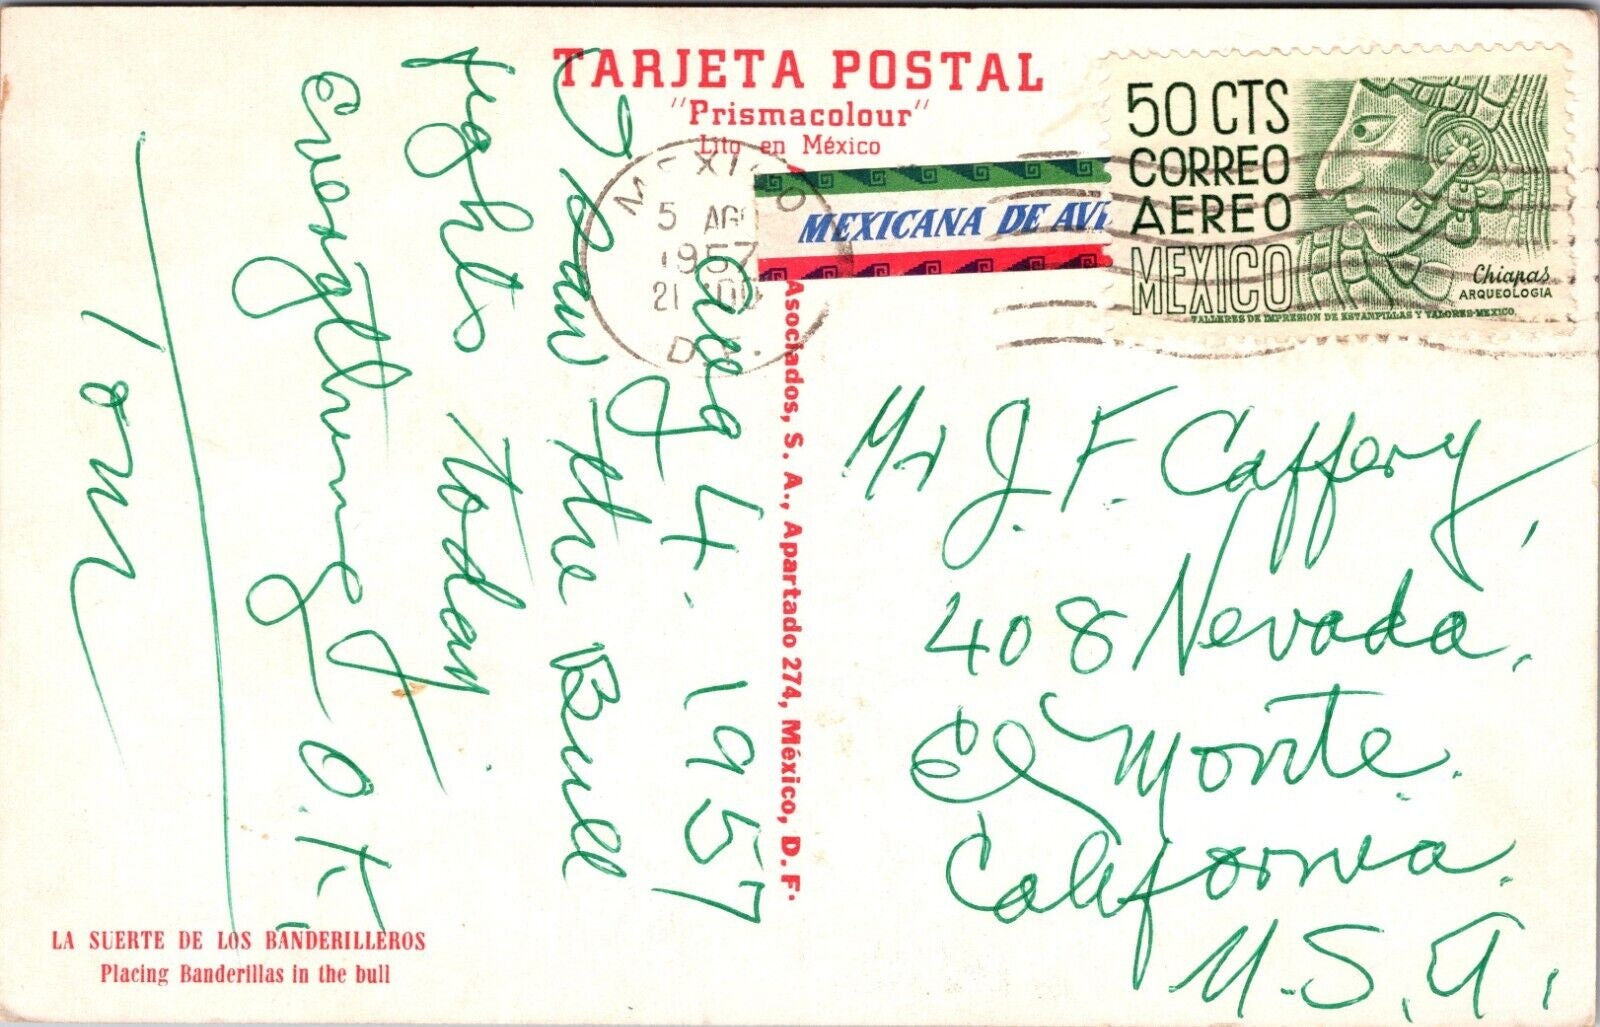 TARJETA POSTAL
"Prismacolour"
Lito en México
MEXICO
5 AGO
1957
21
D.F.
MEXICANA DE AVI
50 CTS
CORREO
AEREO
MEXICO
Chiapas
ARQUEOLOGIA
TALLERES DE IMPRESION DE ESTAMPILLAS Y VALORES-MEXICO.
Asociados, S. A., Apartado 274, México, D. F.
Aug 4. 1957
I saw the Bull
fights today
Everything O.K.
Tom
Mr J. F. Caffery,
408 Nevada.
El Monte.
California.
U.S.A.
LA SUERTE DE LOS BANDERILLEROS
Placing Banderillas in the bull